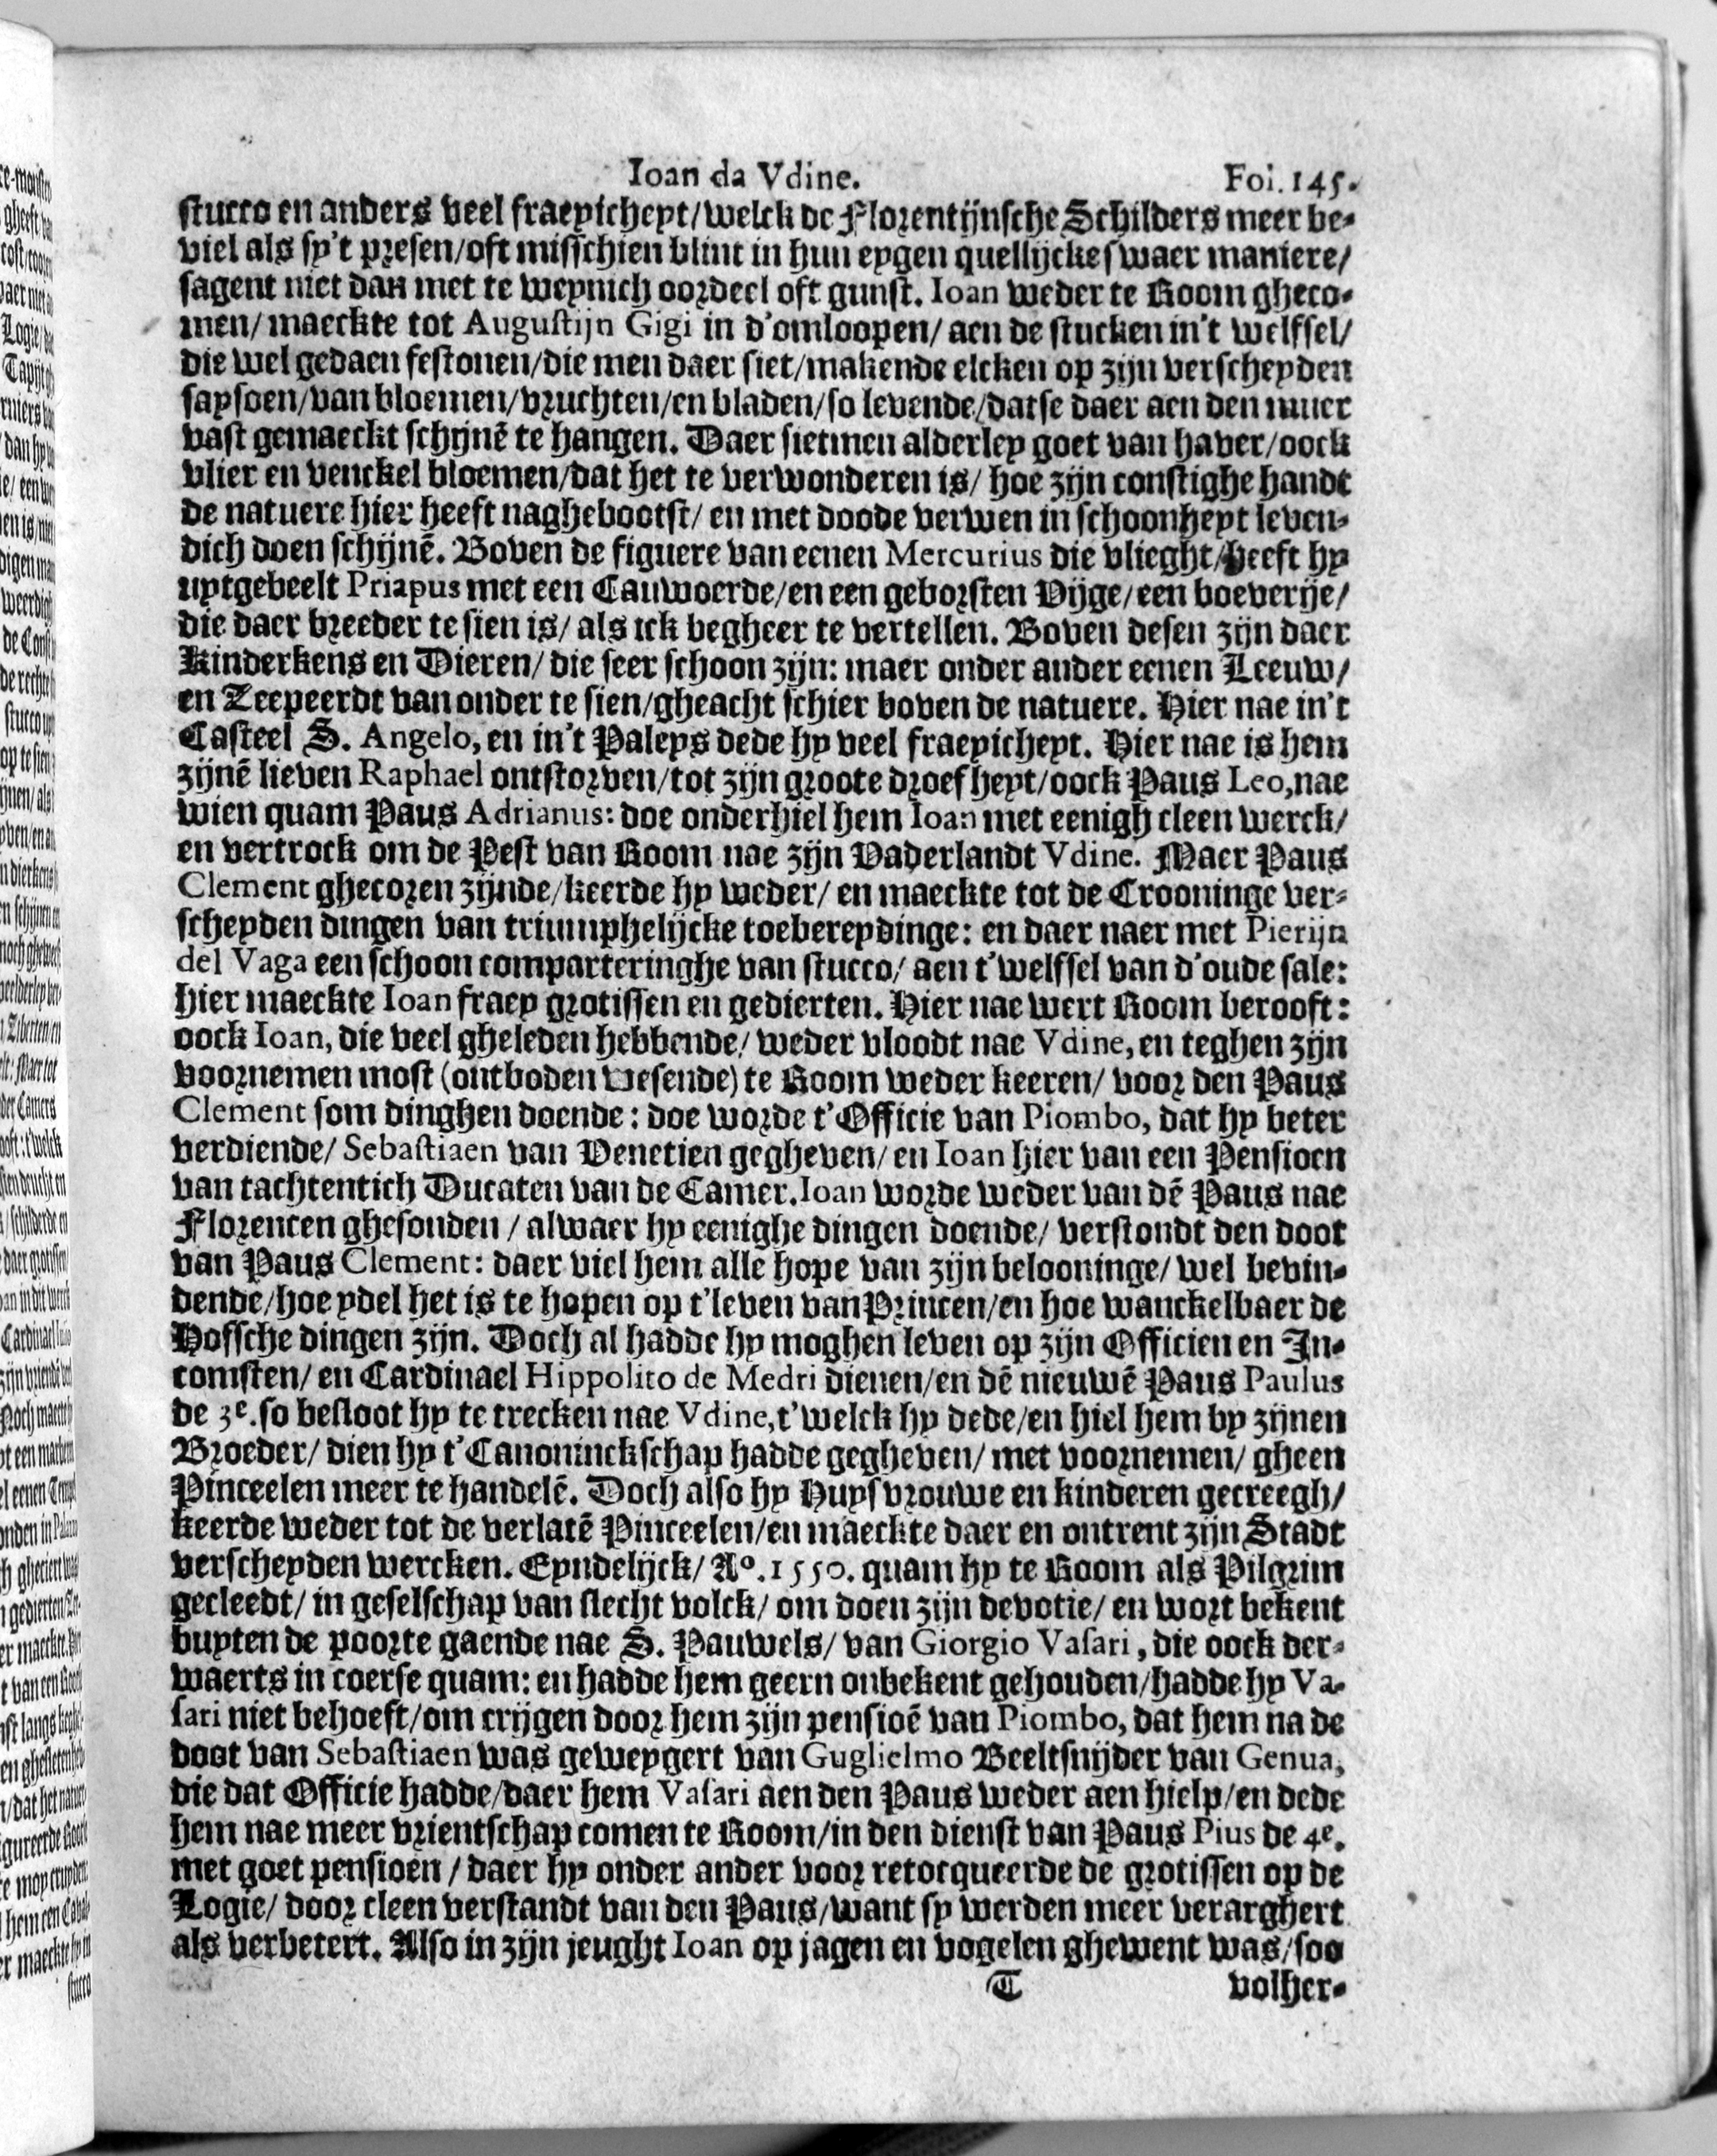 Ioan da Vdine. Fol. 145.
stucco en anders veel fraeyicheyt/welck de Florentijnsche Schilders meer be-
viel als sy't presen/oft misschien blint in hun eygen quellijcke swaer maniere/
sagent niet dan met te weynich oordeel oft gunst. Ioan weder te Room gheco-
men/ maeckte tot Augustijn Gigi in d'omloopen/ aen de stucken in't welffsel/
die wel gedaen festonen/die men daer siet/makende elcken op zijn verscheyden
saysoen/van bloemen/vruchten/en bladen/so levende/datse daer aen den muer
vast gemaeckt schijnē te hangen. Daer sietmen alderley goet van haver/oock
vlier en venckel bloemen/dat het te verwonderen is/ hoe zijn constighe handt
de natuere hier heeft naghebootst/ en met doode verwen in schoonheyt leven-
dich doen schijnē. Boven de figuere van eenen Mercurius die vlieght/heeft hy
uytgebeelt Priapus met een Cauwoerde/en een geborsten Vijge/een boeverije/
die daer breeder te sien is/ als ick begheer te vertellen. Boven desen zijn daer
Kinderkens en Dieren/ die seer schoon zijn: maer onder ander eenen Leeuw/
en Zeepeerdt van onder te sien/gheacht schier boven de natuere. Hier nae in't
Casteel S. Angelo, en in't Paleys dede hy veel fraeyicheyt. Hier nae is hem
zijnē lieven Raphael ontstorven/tot zijn groote droefheyt/oock Paus Leo, nae
wien quam Paus Adrianus: doe onderhiel hem Ioan met eenigh cleen werck/
en vertrock om de Pest van Room nae zijn Vaderlandt Vdine. Maer Paus
Clement ghecoren zijnde/keerde hy weder/ en maeckte tot de Crooninge ver-
scheyden dingen van triumphelijcke toebereydinge: en daer naer met Pierijn
del Vaga een schoon comparteringhe van stucco/ aen t'welffsel van d'oude sale:
hier maeckte Ioan fraey grotissen en gedierten. Hier nae wert Room berooft:
oock Ioan, die veel gheleden hebbende/ weder vloodt nae Vdine, en teghen zijn
voornemen most (ontboden wesende) te Room weder keeren/ voor den Paus
Clement som dinghen doende: doe worde t'Officie van Piombo, dat hy beter
verdiende/ Sebastiaen van Venetien gegheven/ en Ioan hier van een Pensioen
van tachtentich Ducaten van de Camer. Ioan worde weder van dē Paus nae
Florencen ghesonden / alwaer hy eenighe dingen doende/ verstondt den doot
van Paus Clement: daer viel hem alle hope van zijn belooninge/ wel bevin-
dende/hoe ydel het is te hopen op t'leven van Princen/en hoe wanckelbaer de
Hofsche dingen zijn. Doch al hadde hy moghen leven op zijn Officien en In-
comsten/ en Cardinael Hippolito de Medri dienen/en dē nieuwē Paus Paulus
de 3e. so besloot hy te trecken nae Vdine, t'welck hy dede/en hiel hem by zijnen
Broeder/ dien hy t'Canoninckschap hadde gegheven/ met voornemen/ gheen
Pinceelen meer te handelē. Doch also hy Huysvrouwe en kinderen gecreegh/
keerde weder tot de verlatē Pinceelen/en maeckte daer en ontrent zijn Stadt
verscheyden wercken. Eyndelijck/ A°. 1550. quam hy te Room als Pilgrim
gecleedt/ in geselschap van slecht volck/ om doen zijn devotie/ en wort bekent
buyten de poorte gaende nae S. Pauwels/ van Giorgio Vasari, die oock der-
waerts in coerse quam: en hadde hem geern onbekent gehouden/hadde hy Va-
sari niet behoeft/om crijgen door hem zijn pensioē van Piombo, dat hem na de
doot van Sebastiaen was geweygert van Guglielmo Beeltsnijder van Genua,
die dat Officie hadde/daer hem Vasari aen den Paus weder aen hielp/en dede
hem nae meer vrientschap comen te Room/in den dienst van Paus Pius de 4e.
met goet pensioen / daer hy onder ander voor retocqueerde de grotissen op de
Logie/ door cleen verstandt van den Paus/want sy werden meer verarghert
als verbetert. Also in zijn jeught Ioan op jagen en vogelen ghewent was/soo
T volher-